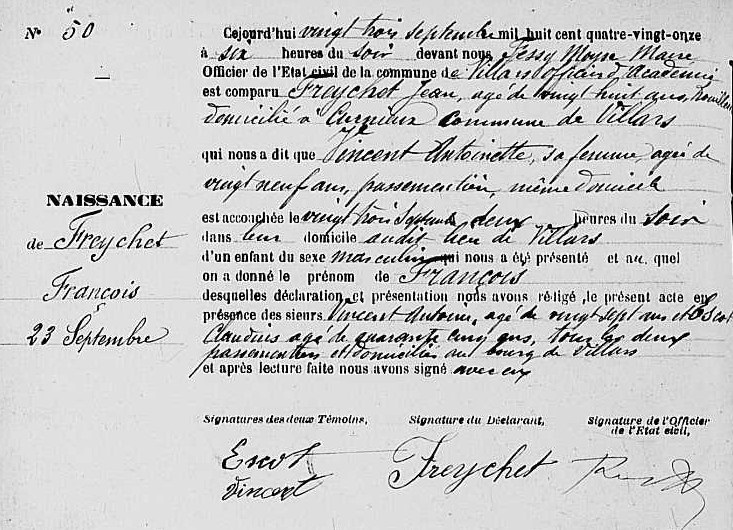 N° 50
NAISSANCE
de Freychet
François
23 Septembre
Cejourd'hui vingt trois septembre mil huit cent quatre-vingt-onze
à six heures du soir devant nous Fessy Moyse Maire
Officier de l'Etat civil de la commune de Villars officier d'Académie
est comparu Freychet Jean, agé de vingt huit ans, houilleur
domicilié à Curnieux commune de Villars
qui nous a dit que Vincent Antoinette, sa femme, agée de
vingt neuf ans, passementière, même domicile
est accouchée le vingt trois Septembre deux heures du soir
dans leur domicile audit lieu de Villars
d'un enfant du sexe masculin qui nous a été présenté et au quel
on a donné le prénom de François
desquelles déclaration et présentation nous avons rédigé le présent acte en
présence des sieurs Vincent Antoine, agé de vingt sept ans et Escot
Claudius agé de quarante cinq ans, tous les deux
passementiers et domiciliés au bourg de Villars
et après lecture faite nous avons signé avec eux
Signatures des deux Témoins, Signature du Déclarant, Signature de l'Officier
de l'Etat civil,
Escot Freychet
Vincent